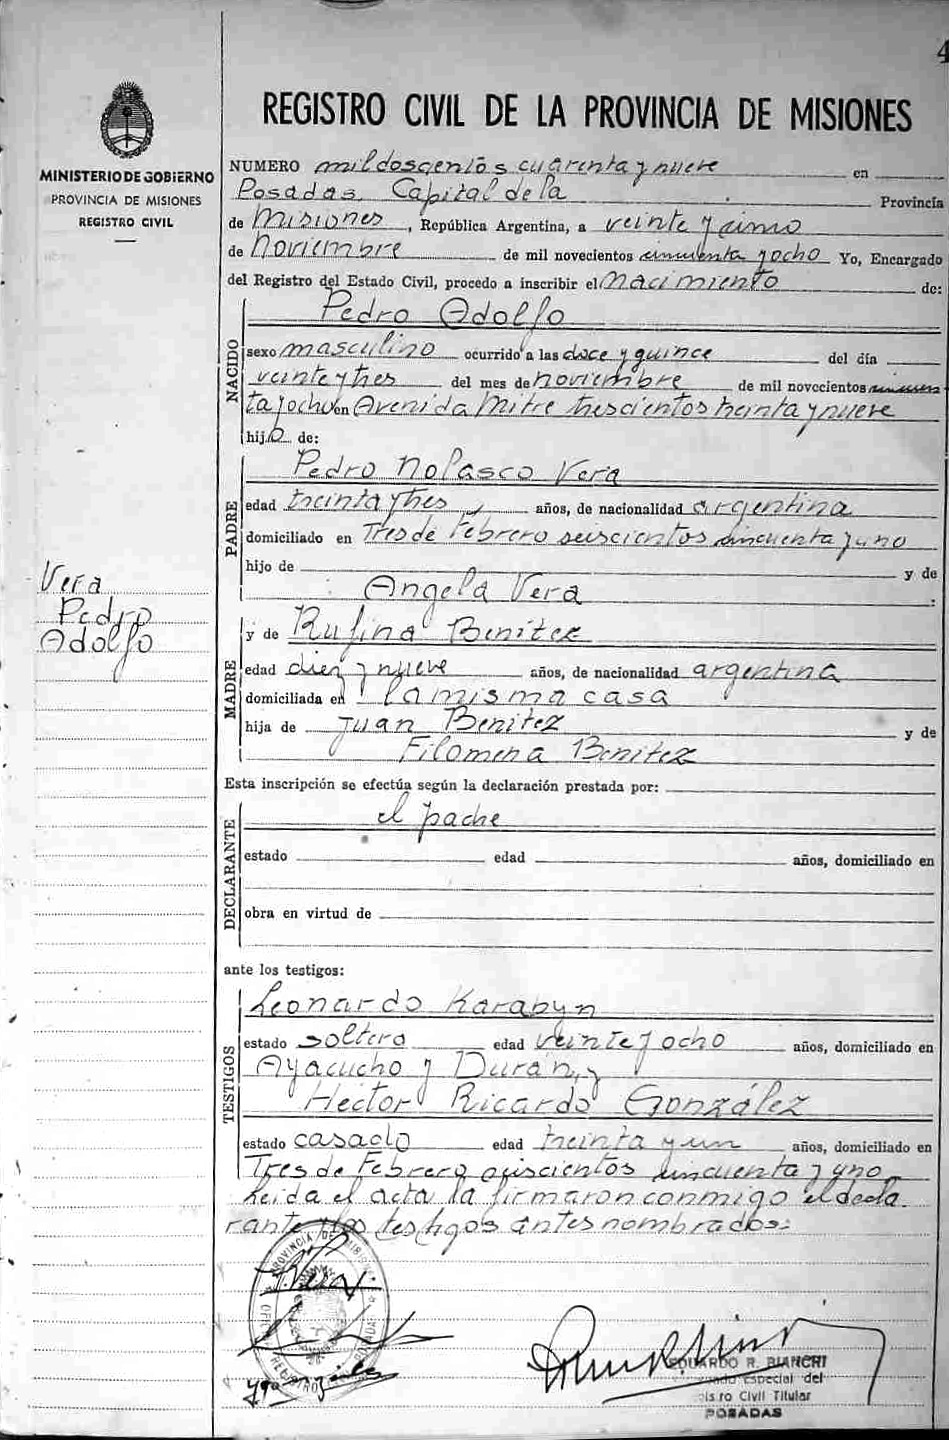 4
REGISTRO CIVIL DE LA PROVINCIA DE MISIONES
MINISTERIO DE GOBIERNO
PROVINCIA DE MISIONES
REGISTRO CIVIL
NUMERO mil doscientos cuarenta y nueve en
Posadas, Capital de la Provincia
de Misiones, República Argentina, a veinte y cinco
de Noviembre de mil novecientos cincuenta y ocho Yo, Encargado
del Registro del Estado Civil, procedo a inscribir el nacimiento de:
NACIDO
Pedro Adolfo
sexo masculino ocurrido a las doce y quince del día
veinte y tres del mes de noviembre de mil novecientos cincuen
ta y ocho en Avenida Mitre trescientos treinta y nueve
hijo de:
PADRE
Pedro Nolasco Vera
edad treinta y tres, años, de nacionalidad argentina
domiciliado en Tres de Febrero seiscientos cincuenta y uno
hijo de y de
Angela Vera :
Vera
Pedro
Adolfo
MADRE
y de Rufina Benitez
edad diez y nueve años, de nacionalidad argentina
domiciliada en la misma casa
hija de Juan Benitez y de
Filomena Benitez
Esta inscripción se efectúa según la declaración prestada por:
DECLARANTE
el padre
estado edad años, domiciliado en
obra en virtud de
ante los testigos:
TESTIGOS
Leonardo Karabyn
estado soltero edad veinte y ocho años, domiciliado en
Ayacucho y Durán, y
Héctor Ricardo González
estado casado edad treinta y un años, domiciliado en
Tres de Febrero seiscientos cincuenta y uno
Leida el acta la firmaron conmigo el decla
rante y los testigos antes nombrados:
PROVINCIA DE MISIONES
P. Vera
EDUARDO R. BIANCHI
Especial del
Civil Titular
POSADAS